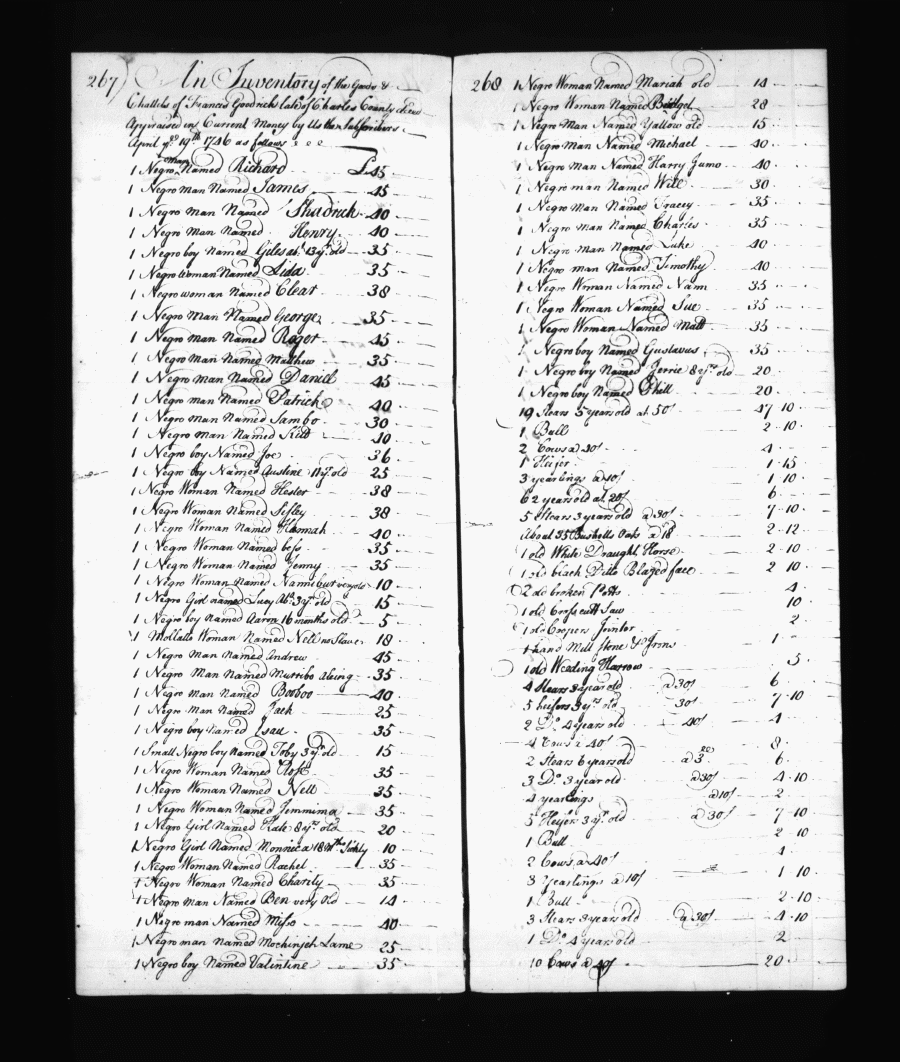 267) An Inventory of the Goods &
Chattels of Francis Goodrick late of Charles County
Appraised in Current Money by Us the Subscribers
April ye 19th 1746 as follows
1 Negro man Named Richard £45
1 Negro man Named James 45
1 Negro Man Named Shadrich 40
1 Negro Man Named Henry 40
1 Negro boy Named Giles abt 13 yrs old 35
1 Negro Woman Named Lida 35
1 Negro woman Named Clear 38
1 Negro Man Named George 35
1 Negro Man Named Roger 45
1 Negro Man Named Matthew 35
1 Negro Man Named Daniell 45
1 Negro Man Named Patrick 40
1 Negro Man Named Sambo 30
1 Negro Man Named Kitt 40
1 Negro boy Named Joe 36
1 Negro boy Named Austine 11 yrs old 25
1 Negro Woman Named Hester 38
1 Negro Woman Named Sifley 38
1 Negro Woman Named Hannah 40
1 Negro Woman Named bess 35
1 Negro Woman Named Jenny 35
1 Negro Woman Named Nanie but very old 10
1 Negro Girl named Lucy Abt 3 yrs old 15
1 Negro boy named Aaron 16 months old 5
1 Mollatto Woman Named Nell no Slave 18
1 Negro Man Named Andrew 45
1 Negro Man Named Murribo 35
1 Negro Man Named Booboo 40
1 Negro Man Named Jack 25
1 Negro boy Named Esau 35
1 Small Nigro boy Named Toby 3 yrs old 15
1 Negro Woman Named Rose 35
1 Negro Woman Named Nell 35
1 Negro Woman Named Jemmima 35
1 Negro Girl Named Kate 8 yrs old 20
1 Negro Girl Named Monnica 18 Mths Sickly 10
1 Negro Woman Named Rachel 35
1 Negro Woman Named Charity 35
1 Negro Man Named Ben very Old 14
1 Negro man Named Miso 40
1 Negro man Named Mochinjeh Lame 25
1 Negro boy Named Valintine 35
268 1 Negro Woman Named Mariah old 14
1 Negro Woman Named Bridget 28
1 Negro Man Named Yallow old 15
1 Negro Man Named Michael 40
1 Negro Man Named Harry Jumo 40
1 Negro man Named Will 30
1 Negro Man Named Tracey 35
1 Negro Man Named Charles 35
1 Negro Man Named Luke 40
1 Negro man Named Timothy 40
1 Negro Woman Named Nam 35
1 Negro Woman Named Sue 35
1 Negro Woman Named Matt 35
Negro boy Named Gustavus 35
1 Negro boy Named Jerrie 8 yrs old 20
1 Negro boy Named Phill 20
19 Stears 5 years old at 50/ 47 10
1 Bull 2 10
2 Cows a 40/ 4
1 Heifer 1 15
3 yearlings a 10/ 1 10
6 2 years old at 20/ 6
5 Stears 3 years old a 30/ 7 10
About 35 Bushells Oats a 18 2 12
1 old White Draught Horse 2 10
1 old black Ditto Blazed face 2 10
2 do broken Potts 4
1 old Cross cutt Saw 10
1 old Coopers Jointer 2
1 hand Mill Stone & Irons 1
1 old Weeding Harrow 5
4 Stears 3 year old a 30/ 6
5 heifers 3 yrs old 30/ 7 10
2 Do 4 years old 40/ 4
4 Cows a 40/ 8
2 Stears 6 years old a 3 6
3 Do 3 year old a 30/ 4 10
4 yearlings a 10/ 2
5 Heifers 3 yrs old a 30/ 7 10
1 Bull 2 10
2 Cows a 40/ 4
3 Yearlings a 10/ 1 10
1 Bull 2 10
3 Stears 3 years old a 30/ 4 10
1 Do 4 years old 2
10 Cows a 40/ 20